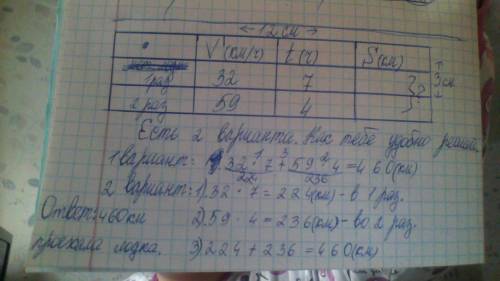 ← 12 см →
V (км/ч) t (ч) S (км)
1 раз 32 7
2 раз 59 4 } ?
3 см
Есть 2 варианта. Как тебе удобно решай
1 вариант: 32 · 7 + 59 · 4 = 460 (км)
224 236
2 вариант: 1) 32 · 7 = 224 (км) - в 1 раз.
Ответ: 460 км 2) 59 · 4 = 236 (км) - во 2 раз.
проехала лодка. 3) 224 + 236 = 460 (км)